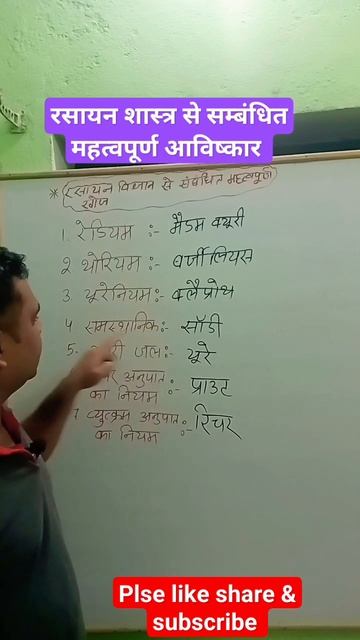 रसायन शास्त्र से सम्बंधित
महत्वपूर्ण आविष्कार
* रसायन विज्ञान से संबंधित महत्वपूर्ण
खोज
1. रेडियम :- मैडम क्यूरी
2 थोरियम :- बर्जीलियस
3 यूरेनियम :- क्लैप्रोथ
4 समस्थानिक :- सॉडी
5- जल :- यूरे
अनुपात
का नियम :- प्राउट
7 व्युत्क्रम अनुपात
का नियम :- रिचर
Plse like share &
subscribe